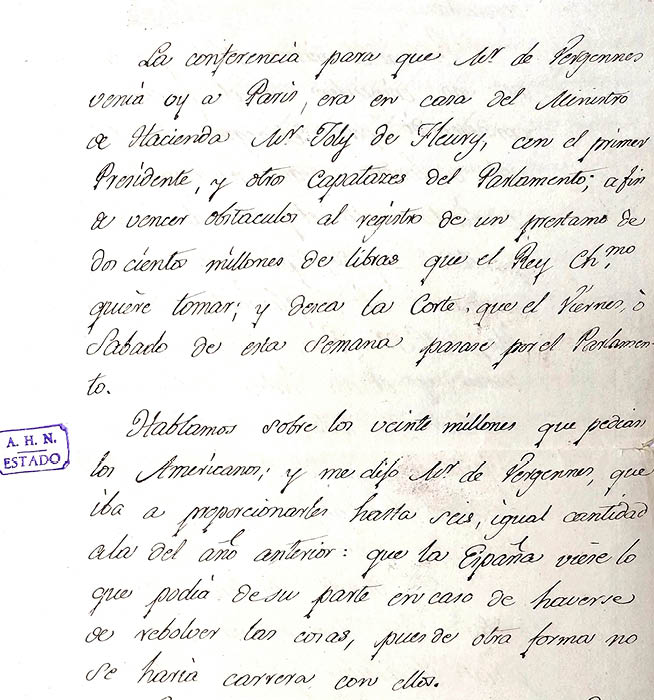 La conferencia para que Mr. de Vergennes
venia oy a Paris, era en casa del Ministro
de Hacienda Mr. Joly de Fleury, con el primer
Presidente, y otros Capatazes del Parlamento; a fin
de vencer obstaculos al registro de un prestamo de
dos cientos millones de libras que el Rey Chmo.
quiere tomar; y desea la Corte, que el Viernes, ò
Sabado de esta Semana pasase por el Parlamen-
to.
Hablamos sobre los veinte millones que pedian
A. H. N.
ESTADO
los Americanos; y me dijo Mr. de Vergennes, que
iba a proporcionarles hasta seis, igual cantidad
ala del año anterior: que la España viese lo
que podia desu parte en caso de haverse
de rebolver las cosas, pues de otra forma no
se haria carrera con ellos.